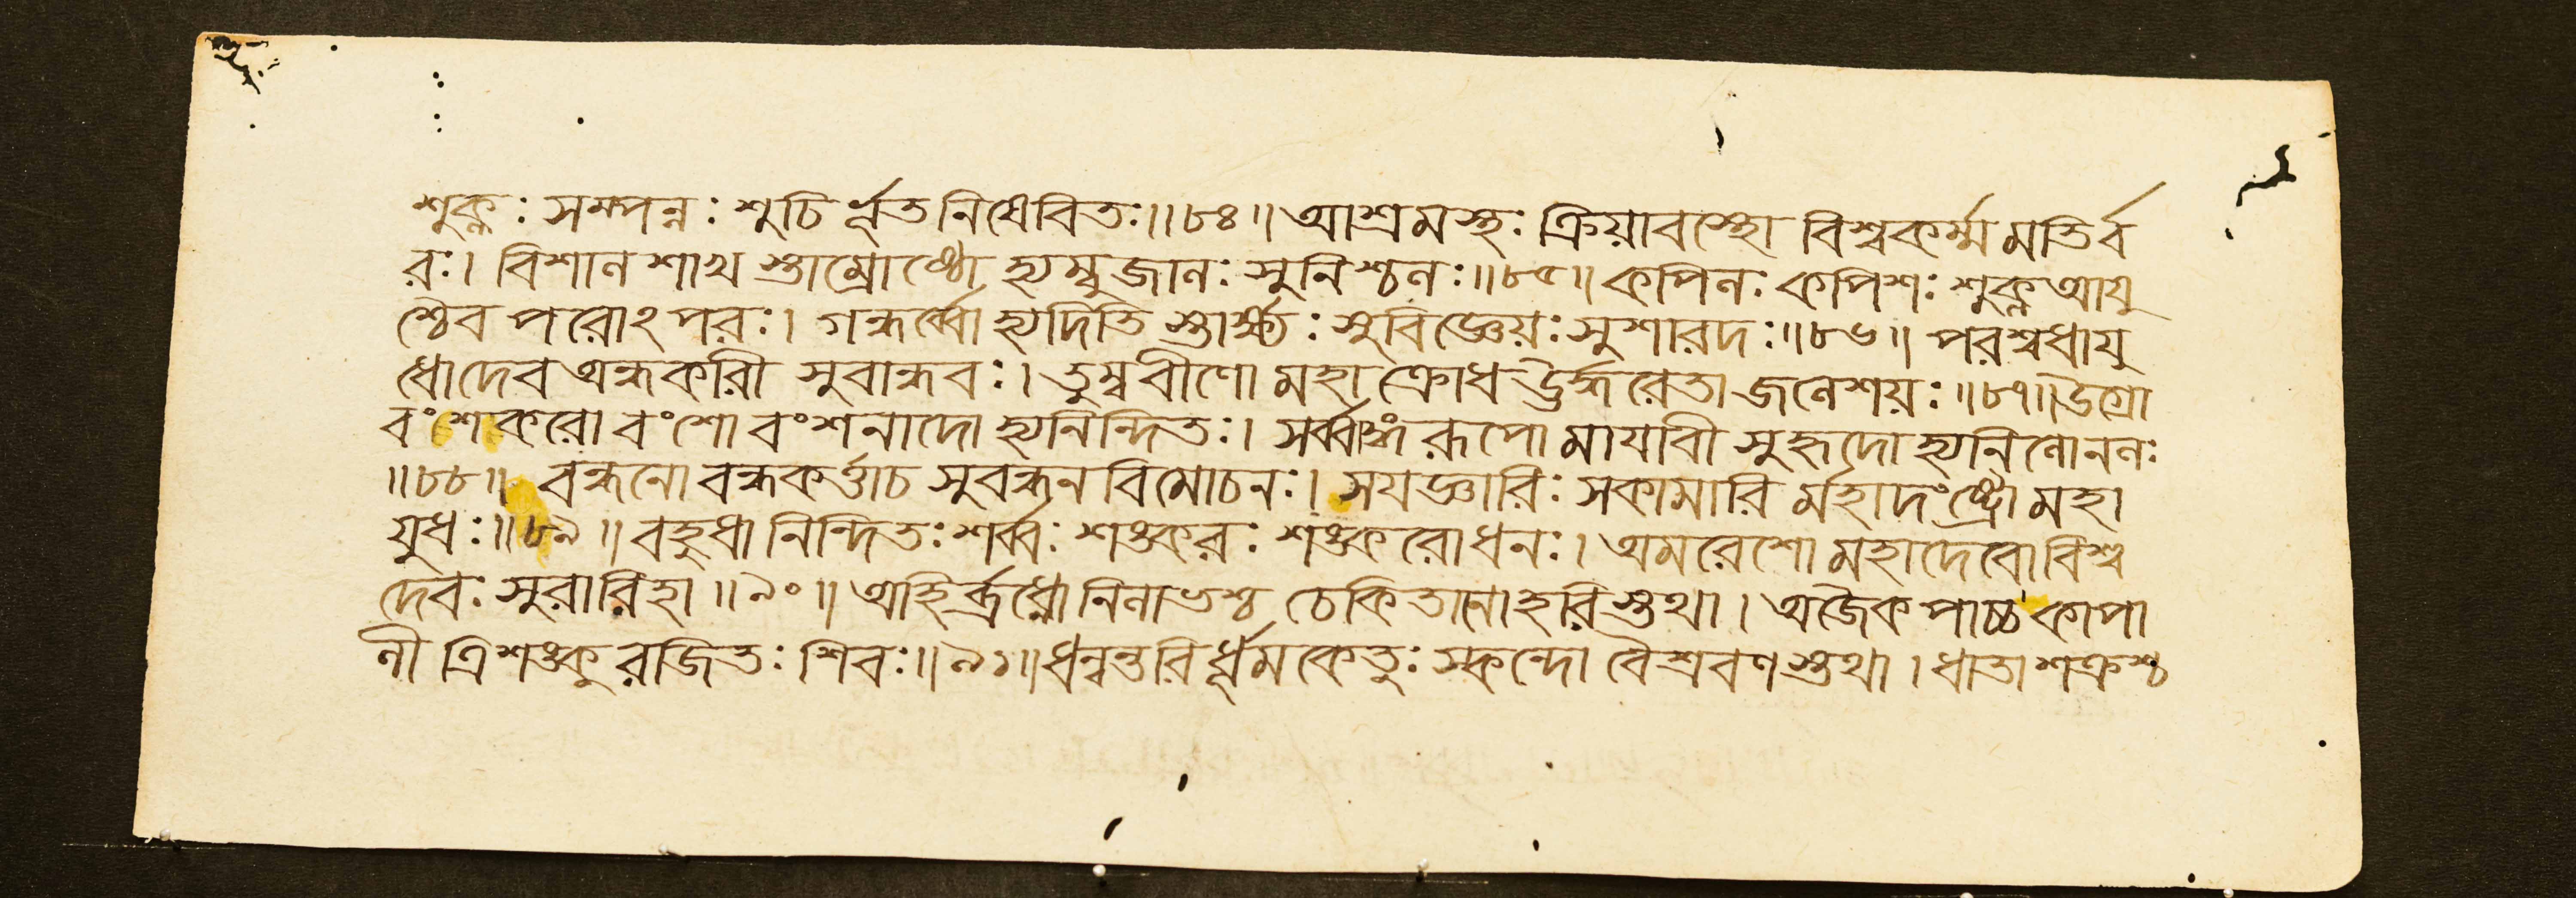 শুক্লঃ সম্পন্নঃ শুচির্ভূতনিষেবিতঃ॥৮৪॥ আশ্রমস্থঃ ক্রিয়াবস্থো বিশ্বকর্ম্মমতির্ব
রঃ। বিশালশাখস্তাম্রোষ্ঠো হ্যম্বুজালঃ সুনিশ্চলঃ॥৮৫॥ কপিলঃ কপিশঃ শুক্ল আয়ু
শ্চৈব পরোঽপরঃ। গন্ধর্ব্বো হ্যদিতিস্তার্ক্ষ্যঃ সুবিজ্ঞেয়ঃ সুশারদঃ॥৮৬॥ পরশ্বধায়ু
ধোদেব অন্ধকারী সুবান্ধবঃ। তুম্ববীণো মহাক্রোধ ঊর্দ্ধরেতা জলেশয়ঃ॥৮৭॥ উগ্রো
বংশকরো বংশো বংশনাদো হ্যনিন্দিতঃ। সর্ব্বাঙ্গরূপো মায়াবী সুহৃদো হ্যনিলোনলঃ
॥৮৮॥ বন্ধনো বন্ধকর্ত্তাচ সুবন্ধন বিমোচনঃ। সযজ্ঞারিঃ সকামারি র্মহাদংষ্ট্রো মহা
যুধঃ॥৮৯॥ বহুধা নিন্দিতঃ শর্ব্বঃ শঙ্করঃ শঙ্করোধনঃ। অমরেশো মহাদেবো বিশ্ব
দেবঃ সুরারিহা॥৯০॥ অহির্ব্রধ্নোনিলাভশ্চ চেকিতানোহরিস্তথা। অজৈকপাচ্চ কাপা
লী ত্রিশঙ্কুরজিতঃ শিবঃ॥৯১॥ ধন্বন্তরির্ধূমকেতুঃ স্কন্দো বৈশ্রবণস্তথা। ধাতা শক্রশ্চ